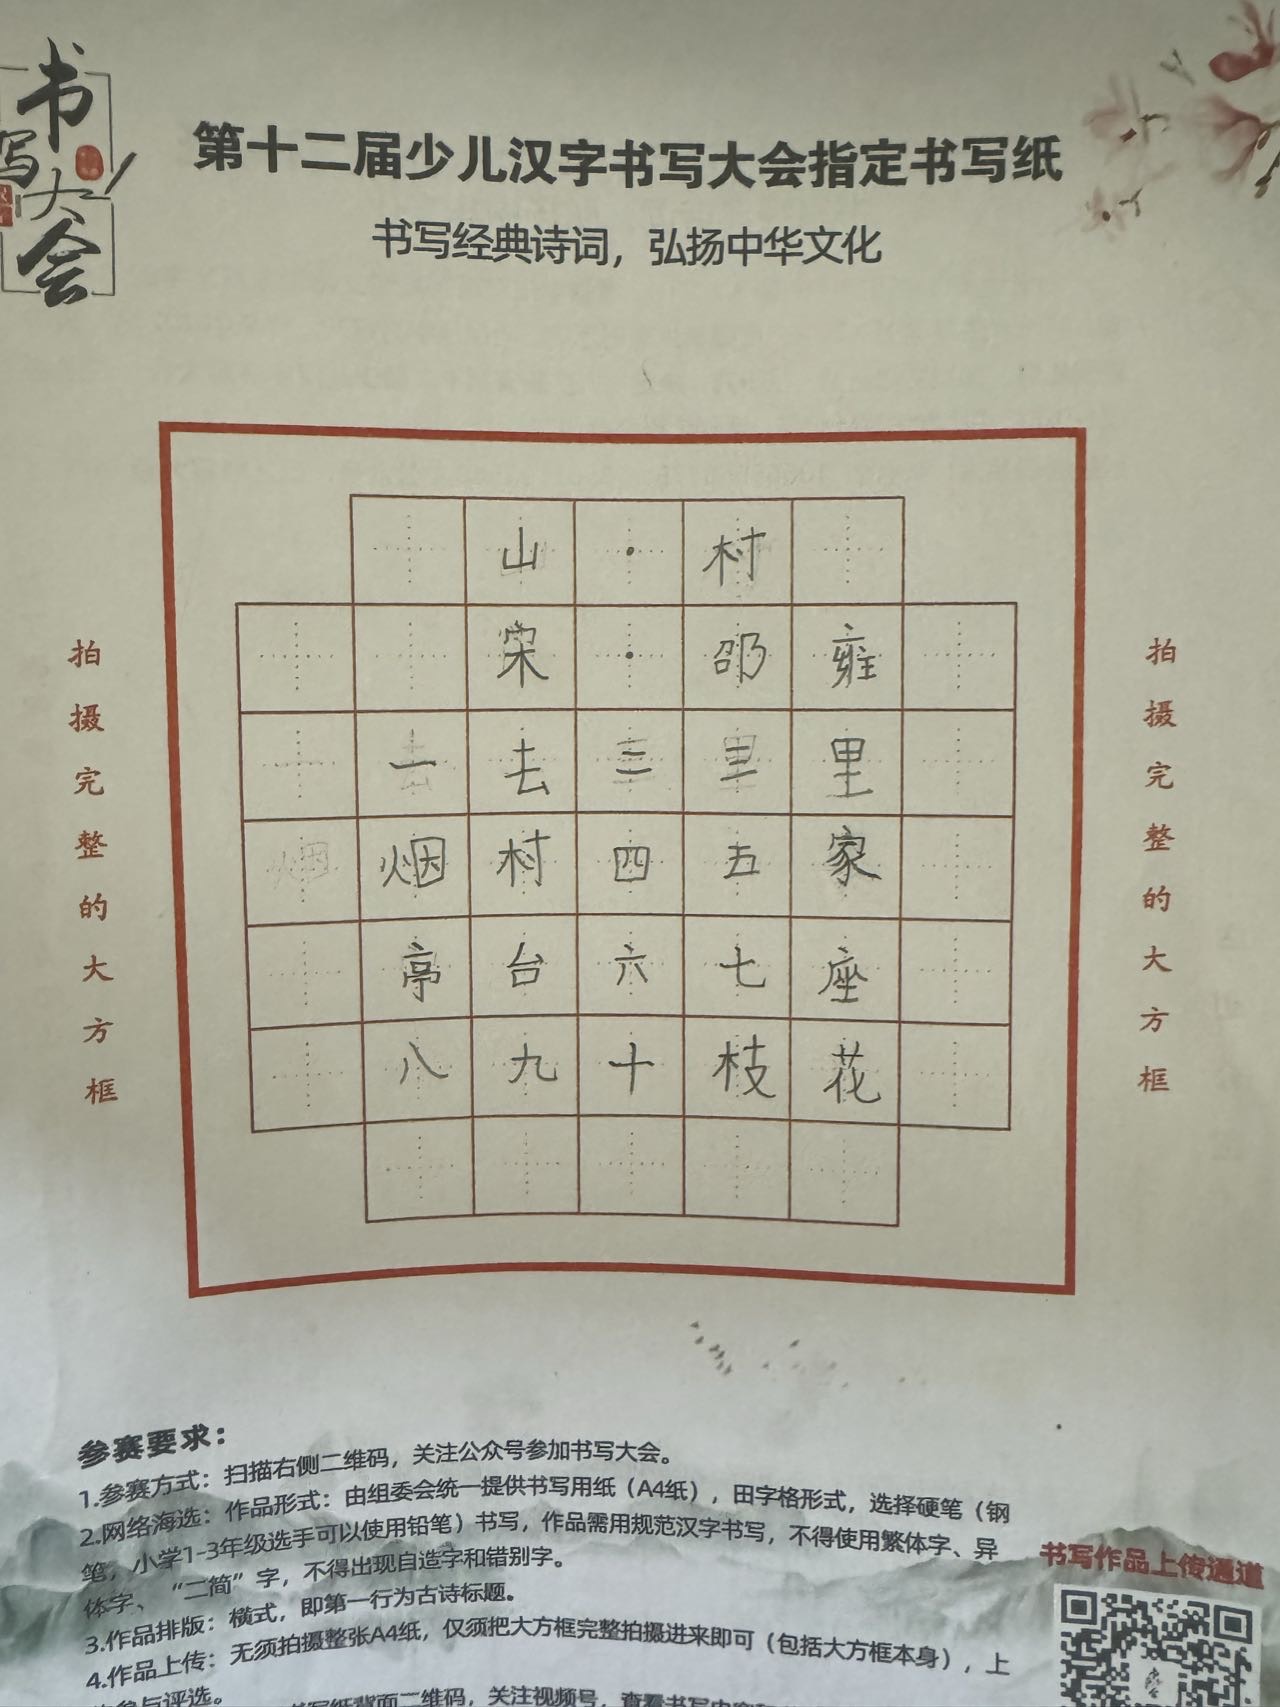 书写大会
第十二届少儿汉字书写大会指定书写纸
书写经典诗词，弘扬中华文化
山·村
宋·邵雍
一去二三里
烟村四五家
亭台六七座
八九十枝花
拍摄完整的大方框
拍摄完整的大方框
参赛要求：
1.参赛方式：扫描右侧二维码，关注公众号参加书写大会。
2.网络海选：作品形式：由组委会统一提供书写用纸（A4纸），田字格形式，选择硬笔（钢
笔，小学1-3年级选手可以使用铅笔）书写，作品需用规范汉字书写，不得使用繁体字、异
体字、“二简”字，不得出现自造字和错别字。
3.作品排版：横式，即第一行为古诗标题。
4.作品上传：无须拍摄整张A4纸，仅须把大方框完整拍摄进来即可（包括大方框本身），上
参与评选。
书写纸背面二维码，关注视频号，查看书写内容
书写作品上传通道